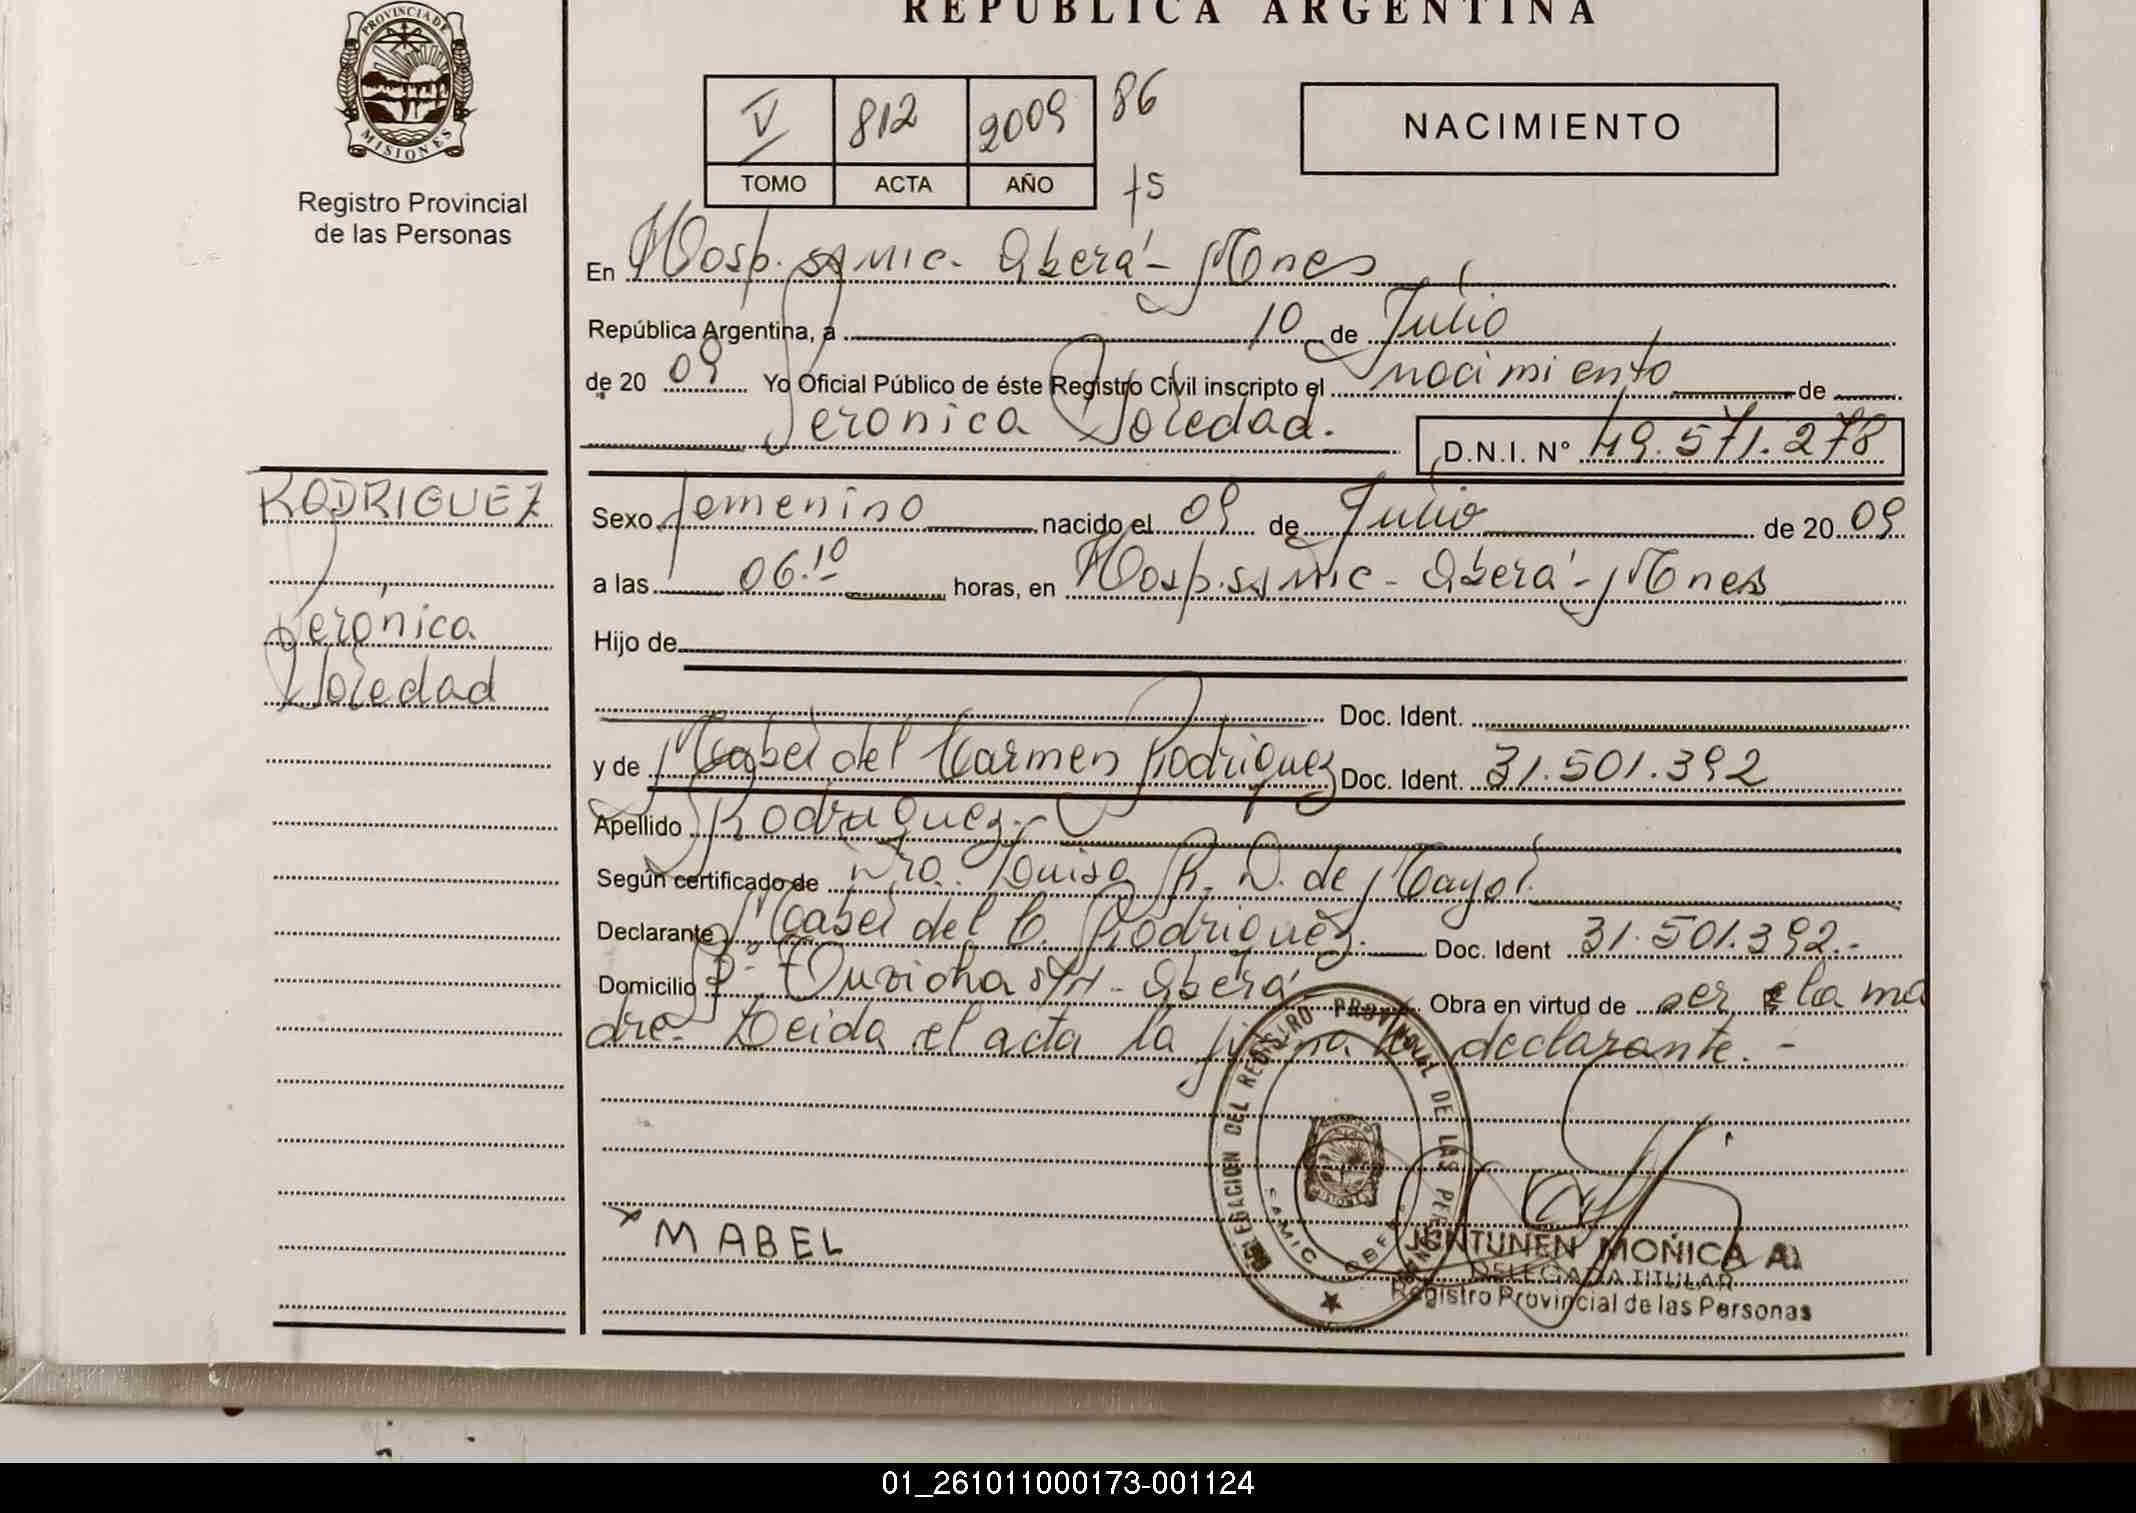 REPÚBLICA ARGENTINA
PROVINCIA DE
MISIONES
Registro Provincial
de las Personas
V 812 2009 86
TOMO ACTA AÑO f5
NACIMIENTO
En Hosp. SAMIC. Oberá - Mnes
República Argentina, a 10 de Julio
de 20 09 Yo Oficial Público de éste Registro Civil inscripto el nacimiento de
Veronica Soledad.
D.N.I. N° 49.571.278
RODRIGUEZ
Veronica
Soledad
Sexo femenino nacido el 09 de Julio de 20 09
a las 06.10 horas, en Hosp. SAMIC - Oberá - Mnes
Hijo de
Doc. Ident.
y de Mabel del Carmen Rodriguez Doc. Ident. 31.501.392
Apellido Rodriguez.-
Según certificado de Dra. Luisa R. D. de Mayol
Declarante Mabel del C. Rodriguez. Doc. Ident 31.501.392.-
Domicilio Bº S/N - Oberá - Obra en virtud de ser la ma
dre.- Leida el acta la firma la declarante. -
DELEGACION DEL REGISTRO PROVINCIAL DE LAS PERSONAS
SAMIC OBERA
x MABEL
JENTUNEN MONICA A.
DELEGADA TITULAR
Registro Provincial de las Personas
01_261011000173-001124